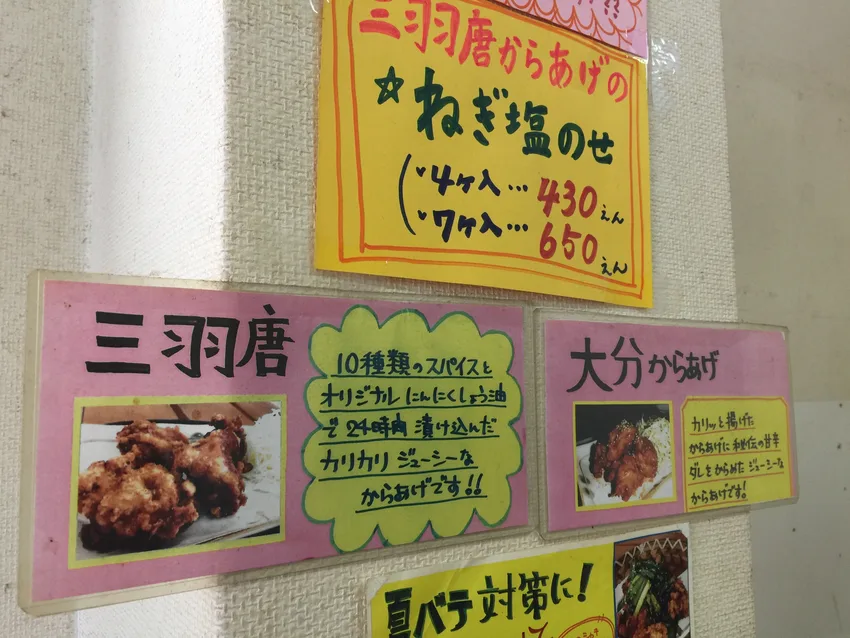 三羽唐からあげの
☆ねぎ塩のせ
4ケ入…430えん
7ケ入…650えん
三羽唐
10種類のスパイスと
オリジナルにんにくしょう油
で24時間漬け込んだ
カリカリジューシーな
からあげです!!
大分からあげ
カリッと揚げた
からあげに秘伝の甘辛
ダレとからめたジューシーな
からあげです!
夏バテ対策に!